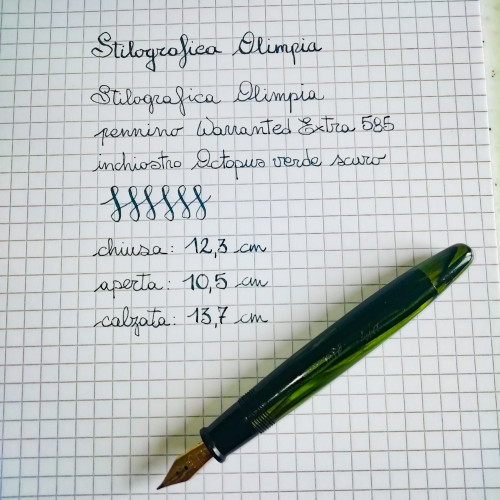 Stilografica Olimpia
Stilografica Olimpia
pennino Warranted Extra 585
inchiostro Octopus verde scuro
chiusa: 12,3 cm
aperta: 10,5 cm
calzata: 13,7 cm